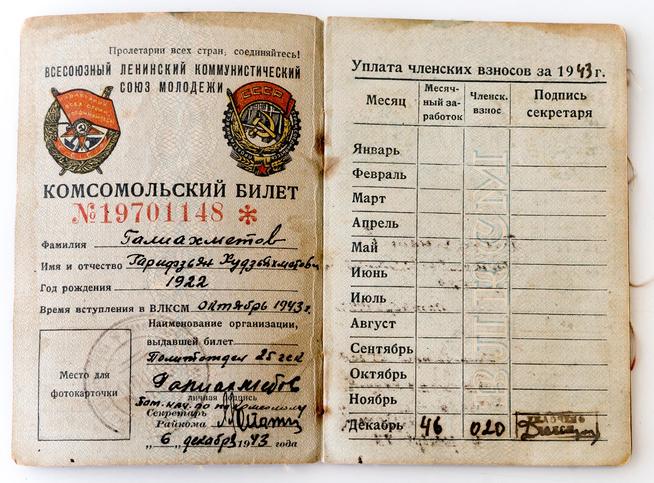 Пролетарии всех стран, соединяйтесь!
ВСЕСОЮЗНЫЙ ЛЕНИНСКИЙ КОММУНИСТИЧЕСКИЙ
СОЮЗ МОЛОДЕЖИ
СССР
КОМСОМОЛЬСКИЙ БИЛЕТ
№19701148 *
Фамилия Галиахметов
Имя и отчество Гарифзьян
Год рождения 1922
Время вступления в ВЛКСМ октябрь 1943 г.
Наименование организации,
выдавшей билет
Политотдел 25 гск
Место для
фотокарточки
Галиахметов
личная подпись
Пом. нач. по по комсомолу
Секретарь
Райкома
„ 6 „ декабрь 1943 года
Уплата членских взносов за 1943 г.
Месяц Месяч-ный за-работок Членск. взнос Подпись секретаря
Январь
Февраль
Март
Апрель
Май
Июнь
Июль
Август
Сентябрь
Октябрь
Ноябрь
Декабрь 46 0 20
ВЛКСМ